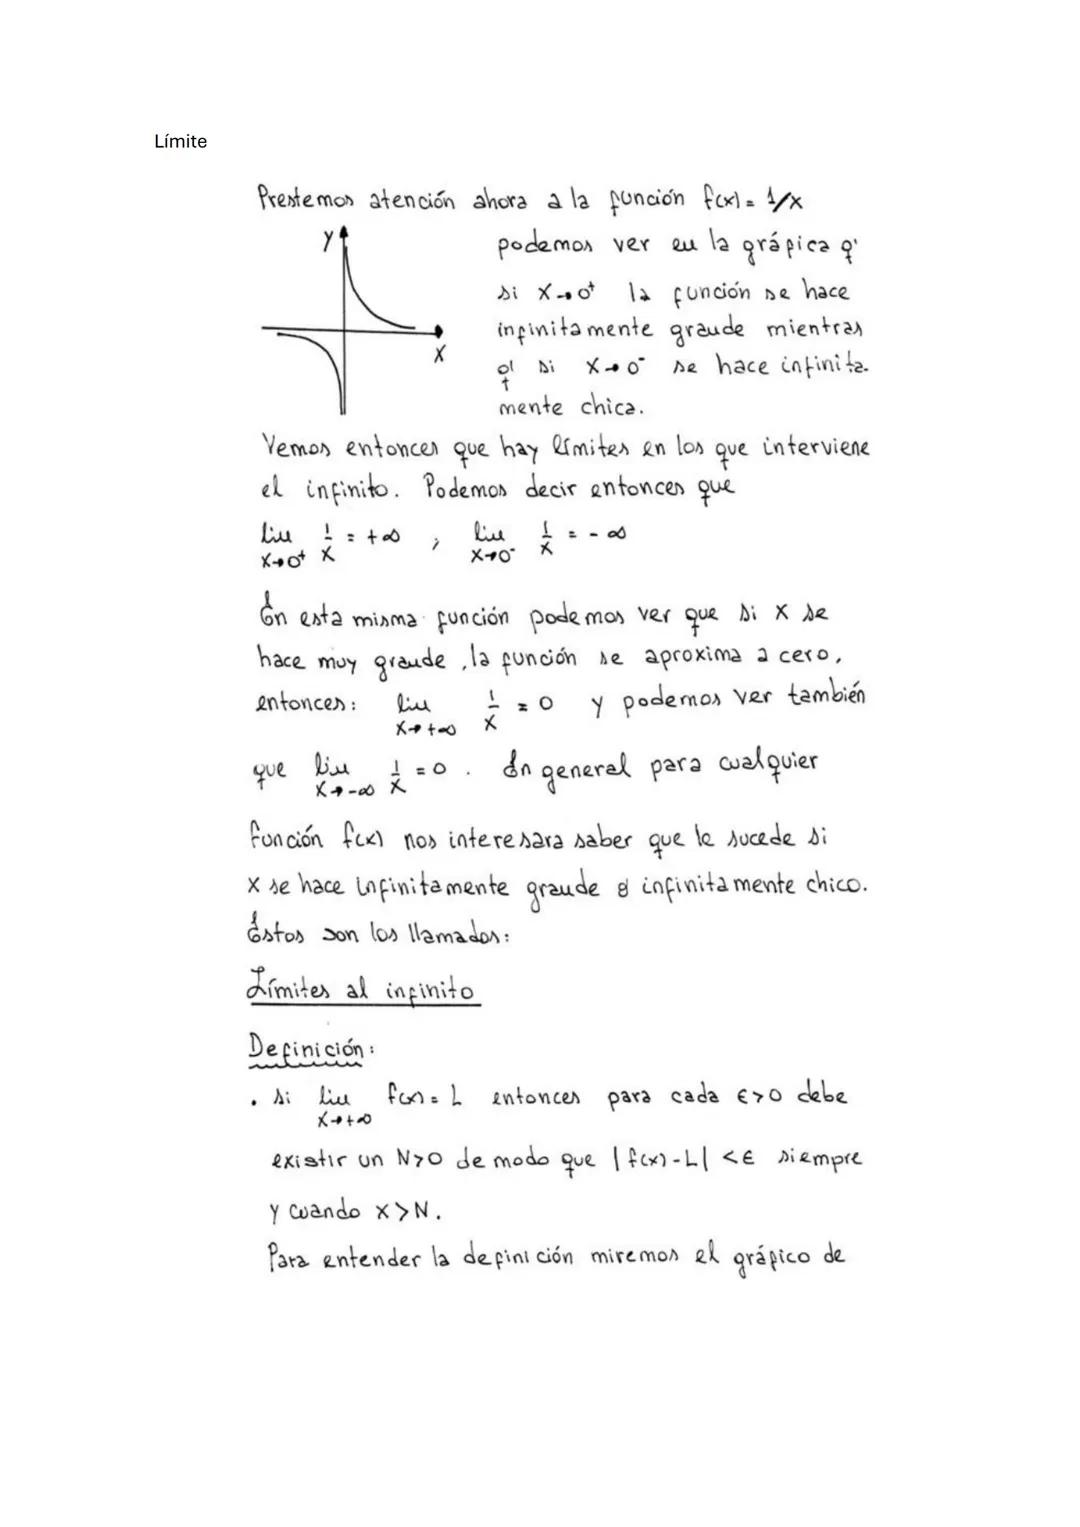 Límite
Prestemos atención ahora a la función f(x) = 1/x
y
x
podemos ver en la gráfica q'
si x→0⁺ la función se hace
infinitamente grande mientras
q' si x→0⁻ se hace infinita-
mente chica.
Vemos entonces que hay límites en los que interviene
el infinito. Podemos decir entonces que
lim 1/x = +∞ ; lim 1/x = -∞
x→0⁺ x→0⁻
En esta misma función podemos ver que si x se
hace muy grande, la función se aproxima a cero,
entonces: lim 1/x = 0 y podemos ver también
x→+∞
que lim 1/x = 0. En general para cualquier
x→-∞
función f(x) nos interesara saber que le sucede si
x se hace infinitamente grande o infinitamente chico.
Estos son los llamados:
Límites al infinito
Definición:
. si lim f(x) = L entonces para cada ε>0 debe
x→+∞
existir un N>0 de modo que |f(x)-L| < ε siempre
y cuando x>N.
Para entender la definición miremos el gráfico de